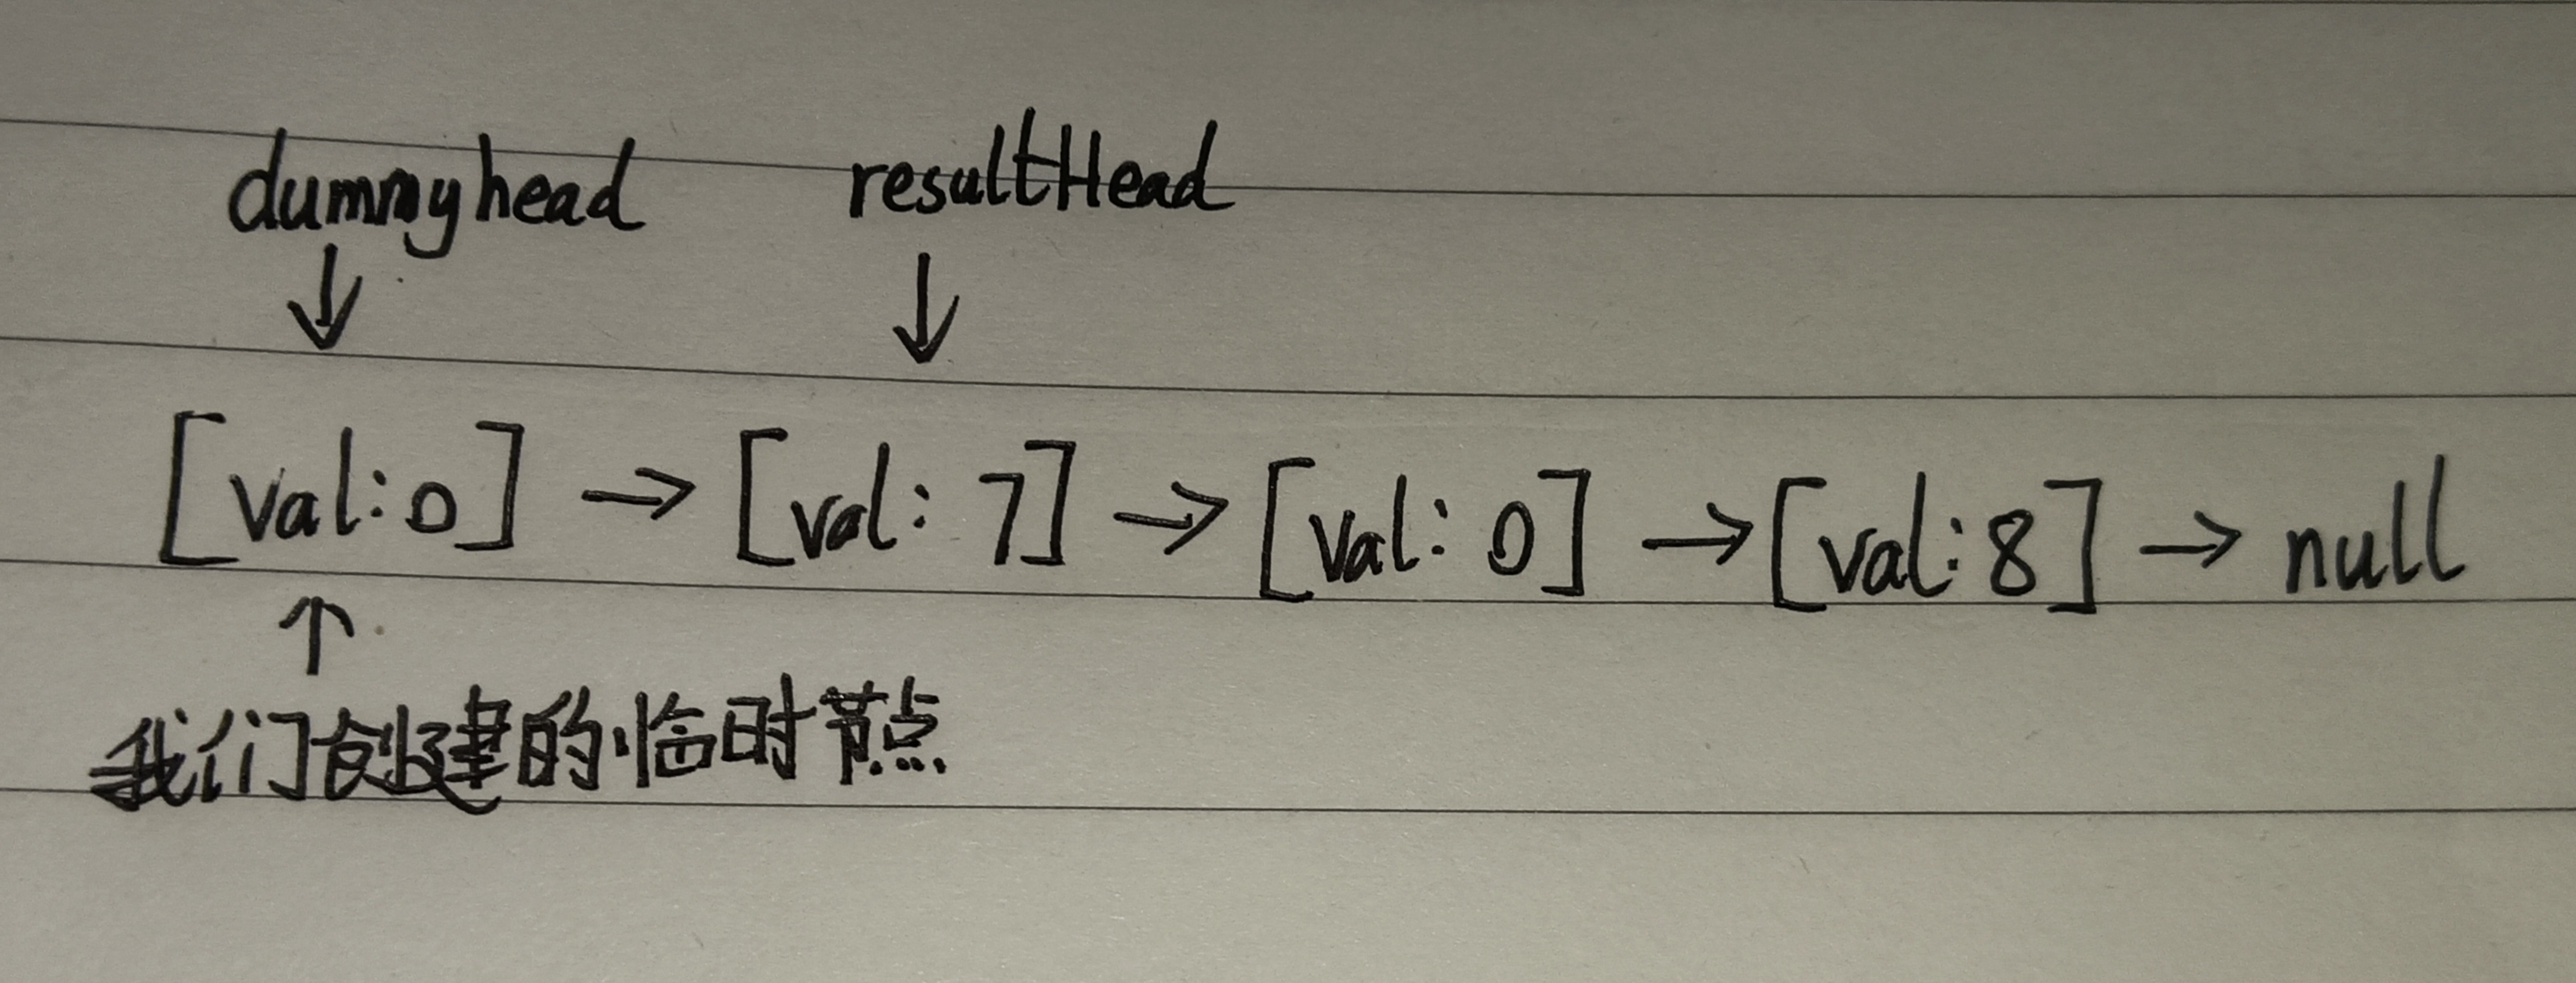 dummyhead resultHead
↓ ↓
[val:0] → [val: 7] → [val: 0] → [val:8] → null
↑
我们创建的临时节点